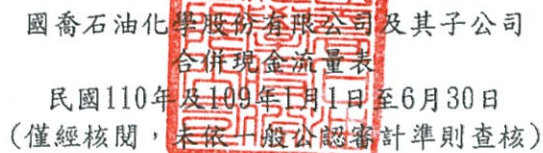 國喬石油化學股份有限公司及其子公司
合併現金流量表
民國110年及109年1月1日至6月30日
(僅經核閱，未依一般公認審計準則查核)